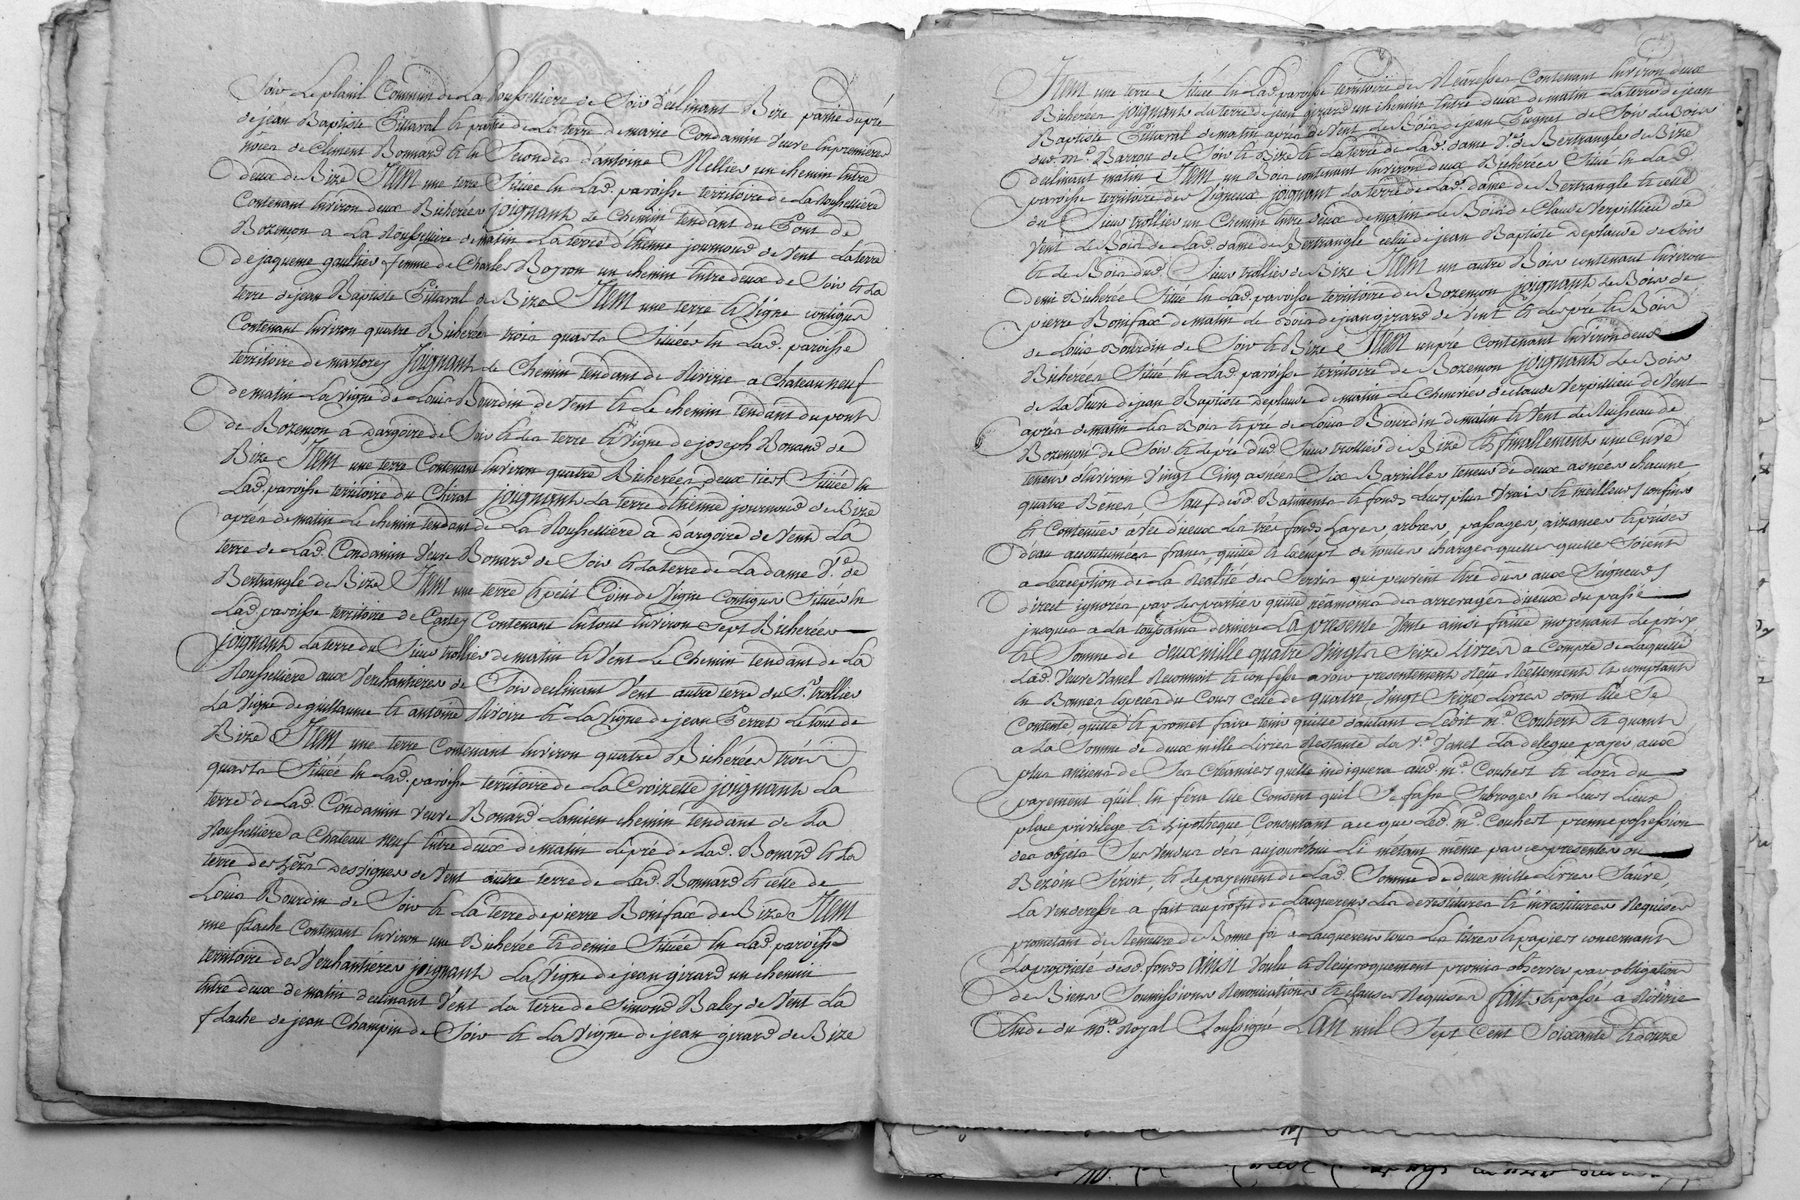 Soir Le planil Commun de La Rousselliere de Soir déclinant Bize partie du pré
de jean Baptiste Pittaval & partie de La terre de marie Condamin Veuve En premieres
nôces de Climent Bonnard & En Secondes d'antoine Mellier un chemin Entre
deux de Bize Item une terre Située En Lad. paroisse territoire de La Roussellière
Contenant Environ deux Bicherées joignant Le Chemin tendant du Pont de
Bozemon a La Roussellière de matin La terre d'Etienne journoud de Vent La terre
de jaqueme gaultier femme de Charle Boyron un chemin Entre deux de Soir & La
terre de jean Baptiste Pittaval de Bize Item une terre & Vigne contigue
Contenant Environ quatre Bicherées trois quarts Situées En Lad. paroisse
territoire de martorey joignant Le Chemin tendant de Riverie a Chateauneuf
de matin La Vigne de Louis Bourdin de Vent & Le chemin tendant du pont
de Bozemon a Dargoire de Soir & Les terre & Vigne de joseph Bonard de
Bize Item une terre Contenant Environ quatre Bicherées deux tiers Située En
Lad. paroisse territoire du Chirat joignant La terre d'Etienne journoud de Bize
après de matin Le chemin tendant de La Roussellière a Dargoire de Vent La
terre de Lad. Condamin Veuve Bonard de Soir & La terre de La dame V.e de
Bertrangle de Bize Item une terre & petit Coin de Vigne Contigus Situés En
Lad. paroisse territoire de Corley Contenant En tout Environ Sept Bicherées
joignant La terre du Sieur trollier de matin & Vent Le Chemin tendant de La
Roussellière aux Verchantières de Soir declinant Vent autre terre du S.r trollier
La Vigne de guillaume & antoine Rivoire & La Vigne de jean Perret Le tout de
Bize Item une terre Contenant Environ quatre Bicherées trois
quarts Située En Lad. paroisse territoire de La Croizette joignant La
terre de Lad. Condamin Veuve Bonard L'ancien chemin tendant de La
Roussellière a Chateau neuf Entre deux de matin Le pré de Lad. Bonard & La
terre des hers Dessignes de Vent autre terre de Lad. Bonnard & celle de
Louis Bourdin de Soir & La terre de pierre Boniface de Bize Item
une flache Contenant Environ une Bicherée & demie Située En Lad. paroisse
territoire des Verchantières joignant La Vigne de jean girard un chemin
Entre deux de matin declinant Vent La terre de Simond Baley de Vent La
flache de jean Champin de Soir & La Vigne de jean girard de Bize
Item une terre Située En Lad. paroisse territoire des Neuresses Contenant Environ deux
Bicherées joignant La terre de jean girard un chemin Entre deux de matin La terre de jean
Baptiste Pittaval de matin après de Vent Le Bois de jean Peignet de Soir Le Bois
dud. m.e Barron de Soir & Bize & La terre de Lad. dame V.e de Bertrangle de Bize
declinant matin Item un Bois contenant Environ deux Bicherées Situé En Lad.
paroisse territoire des Vigneux joignant La terre de Lad. dame de Bertrangle & celle
du Sieur trollier un Chemin Entre deux de matin Le Bois de Claude Verpillieu de
Vent Le Bois de Lad. dame de Bertrangle celui de jean Baptiste Deplaude de Soir
& Le Bois dud. Sieur trollier de Bize Item un autre Bois contenant Environ
demi Bicherée Situé En Lad. paroisse territoire de Bozemon joignant Le Bois de
pierre Boniface de matin Le Bois de jean girard de Vent & Le pré & Bois
de Louis Bourdin de Soir & Bize Item un pré Contenant Environ deux
Bicherées Situé En Lad. paroisse territoire de Bozemon joignant Le Bois
de La Veuve de jean Baptiste Deplaude de matin Le Chenevier de Claude Verpillieu de Vent
après de matin Les Bois & pré de Louis Bourdin de matin & Vent Le Ruisseau de
Bozemon de Soir & Le pré dud. Sieur trollier de Bize & finallement une Cuve
teneur d'Environ Vingt Cinq asnées Six Barrilles teneur de deux asnées chacune
quatre Bênes Sauf desd. Batiments & fonds Leurs plus Vrais & meilleurs confins
& Contenues avec d'iceux Les tres fonds Layes arbres, passages aizances & prises
d'eau accoutumées francs quitte & Exempt de toutes charges quelles quelle Soient
a L'exception de La Réalité des Servis qui peuvent Etre dûs aux Seigneurs
direct ignorés par Les parties quitte néamoins des arrerages d'iceux du passé
jusques a La toussains dernière La presente Vente ainsi faitte moyenant Le prix
& Somme de deux mille quatre Vingts Seize Livres a Compte de Laquelle
Lad. Veuve Vanel Reconnoit & confesse avoir presentement Reçu Réellement & comptant
En Bonnes Especes du Cours Celle de quatre Vingt Seize Livres dont Elle Se
Contente, quitte & promet faire tenir quitte d'autant Ledit m.e Couhert & quant
a La Somme de deux mille Livres Restante La V.e Vanel La delegue payer aux
plus anciens de Ses Créanciers qu'elle indiquera aud. m.e Couhert & Lors du
payement qu'il En fera Elle Consent qu'il Se fasse Subroger En Leurs Lieux
place privilege & hipotheque Consentant a ce que Led. m.e Couhert prenne possession
des objets Sus Vendus des aujourd'hui L'i métant même par ces presentes ou
Bezoin Seroit, & Le payement de Lad. Somme de deux mille Livres Sauve,
La Venderesse a fait au profit de L'aquereur Les devestitures & investitures Requises
prometant de Remettre de Bonne foi a L'aquereur tous Les titres & papiers concernant
La propriété desd. fonds ainsi Voulu & Réciproquement promis observer par obligation
de Biens Soumissions Renonciations & clauses Requises fait & passé a Riverie
Etude du no.re Royal Soussigné L'an mil Sept Cent Soixante & douze